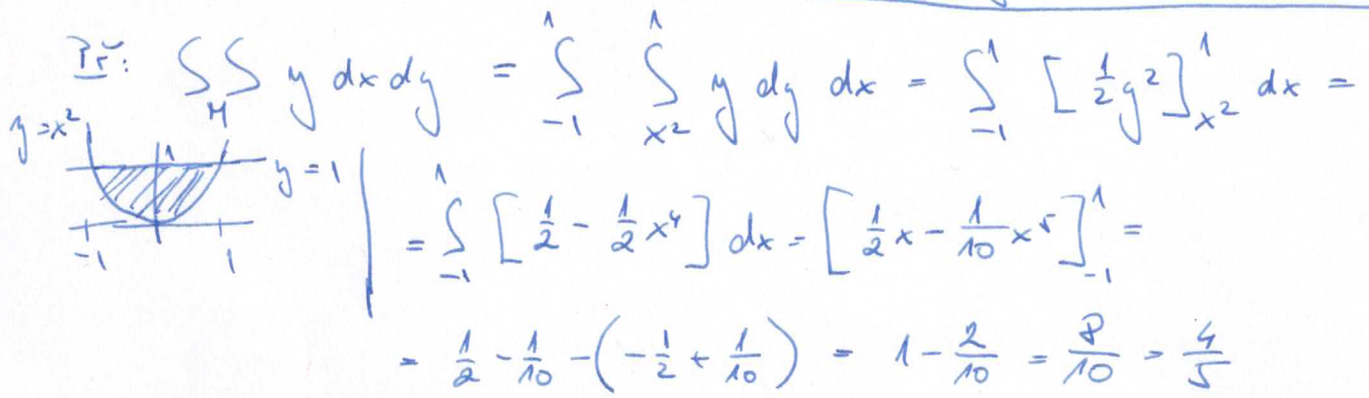 Př: ∫∫_M y dx dy = ∫_{-1}^{1} ∫_{x²}^{1} y dy dx = ∫_{-1}^{1} [½y²]_{x²}^{1} dx =
y=x²
1
y=1
-1 1
= ∫_{-1}^{1} [½ - ½x⁴] dx = [½x - 1/10 x⁵]_{-1}^{1} =
= ½ - 1/10 - (-½ + 1/10) = 1 - 2/10 = 8/10 = 4/5